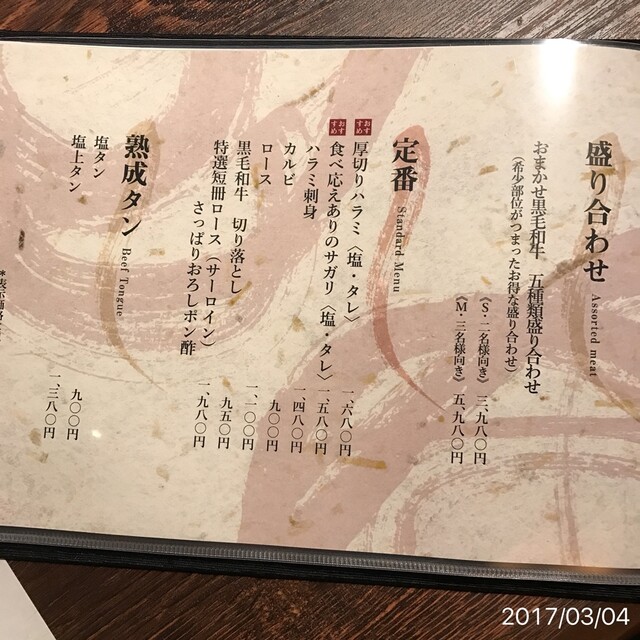 盛り合わせ Assorted meat
おまかせ黒毛和牛 五種類盛り合わせ
(希少部位がつまったお得な盛り合わせ)
《S・二名様向き》 三、九八〇円
《M・三名様向き》 五、九八〇円
定番 Standard Menu
おすすめ 厚切りハラミ〈塩・タレ〉 一、六八〇円
おすすめ 食べ応えありのサガリ〈塩・タレ〉 一、五八〇円
ハラミ刺身 一、四八〇円
カルビ 九〇〇円
ロース 一、二〇〇円
黒毛和牛 切り落とし 九五〇円
特選短冊ロース(サーロイン)
さっぱりおろしポン酢 一、九八〇円
熟成タン Beef Tongue
塩タン 九〇〇円
塩上タン 一、三八〇円
2017/03/04